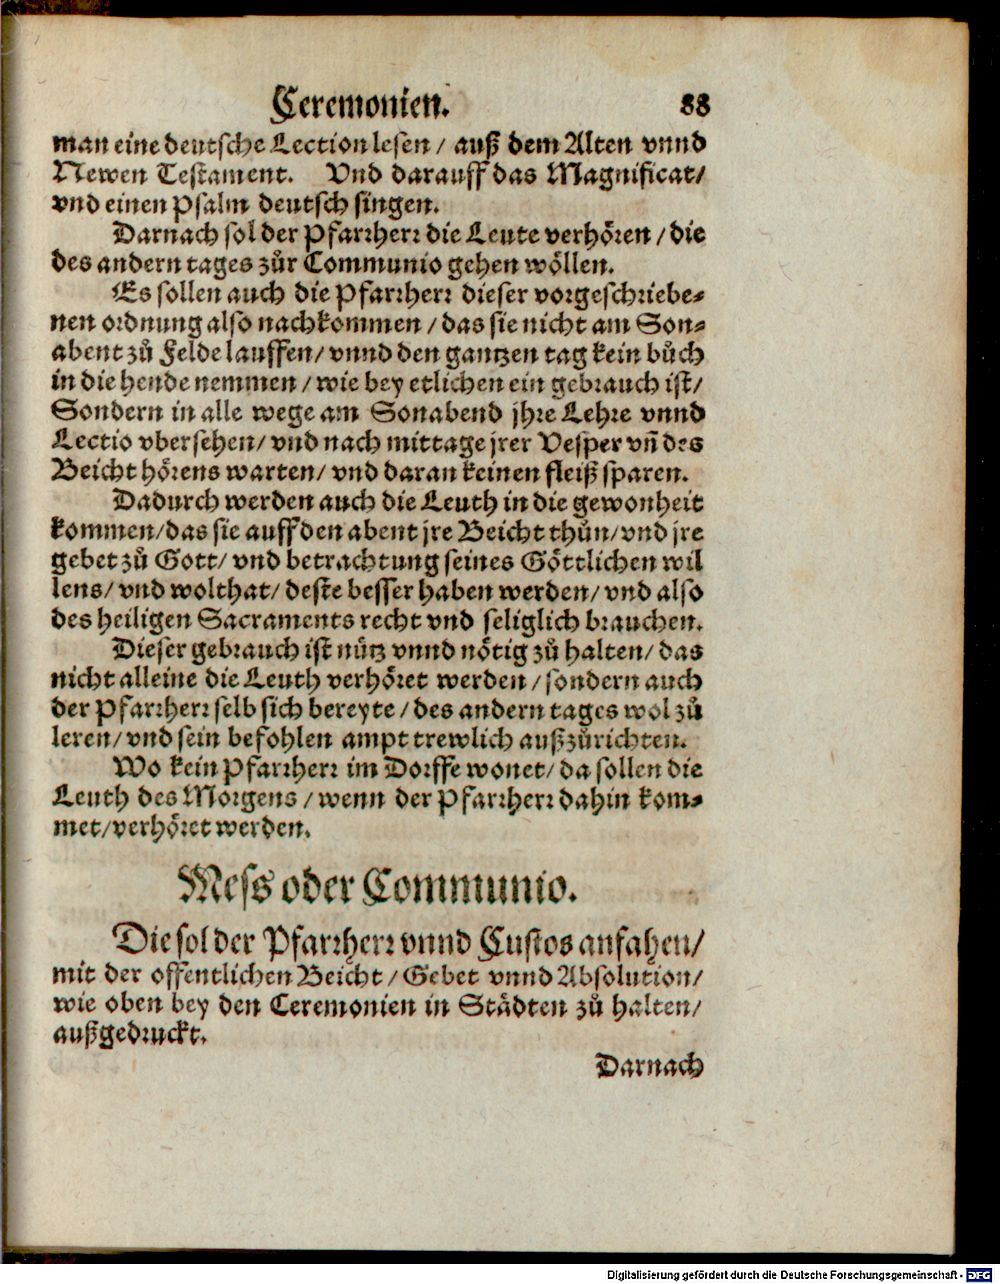 Ceremonien. 88
man eine deutsche Lection lesen / auß dem Alten vnnd
Newen Testament. Vnd darauff das Magnificat/
vnd einen Psalm deutsch singen.
Darnach sol der Pfarrherr die Leute verhören / die
des andern tages zůr Communio gehen wöllen.
Es sollen auch die Pfarrherr dieser vorgeschriebe⸗
nen ordnung also nachkommen / das sie nicht am Son⸗
abent zů Felde lauffen/ vnnd den gantzen tag kein bůch
in die hende nemmen / wie bey etlichen ein gebrauch ist/
Sondern in alle wege am Sonabend jhre Lehre vnnd
Lectio vbersehen/ vnd nach mittage jrer Vesper vn̄ des
Beicht hörens warten/ vnd daran keinen fleiß sparen.
Dadurch werden auch die Leuth in die gewonheit
kommen/das sie auff den abent jre Beicht thůn/vnd jre
gebet zů Gott/ vnd betrachtung seines Göttlichen wil
lens/ vnd wolthat/ deste besser haben werden/ vnd also
des heiligen Sacraments recht vnd seliglich brauchen.
Dieser gebrauch ist nütz vnnd nötig zů halten/ das
nicht alleine die Leuth verhöret werden / sondern auch
der Pfarrherr selb sich bereyte / des andern tages wol zů
leren/ vnd sein befohlen ampt trewlich außzůrichten.
Wo kein Pfarrherr im Dorffe wonet/ da sollen die
Leuth des Morgens / wenn der Pfarrherr dahin kom⸗
met/verhöret werden.
Mess oder Communio.
Die sol der Pfarrherr vnnd Custos anfahen/
mit der offentlichen Beicht / Gebet vnnd Absolution/
wie oben bey den Ceremonien in Städten zů halten/
außgedruckt.
Darnach
Digitalisierung gefördert durch die Deutsche Forschungsgemeinschaft - DFG